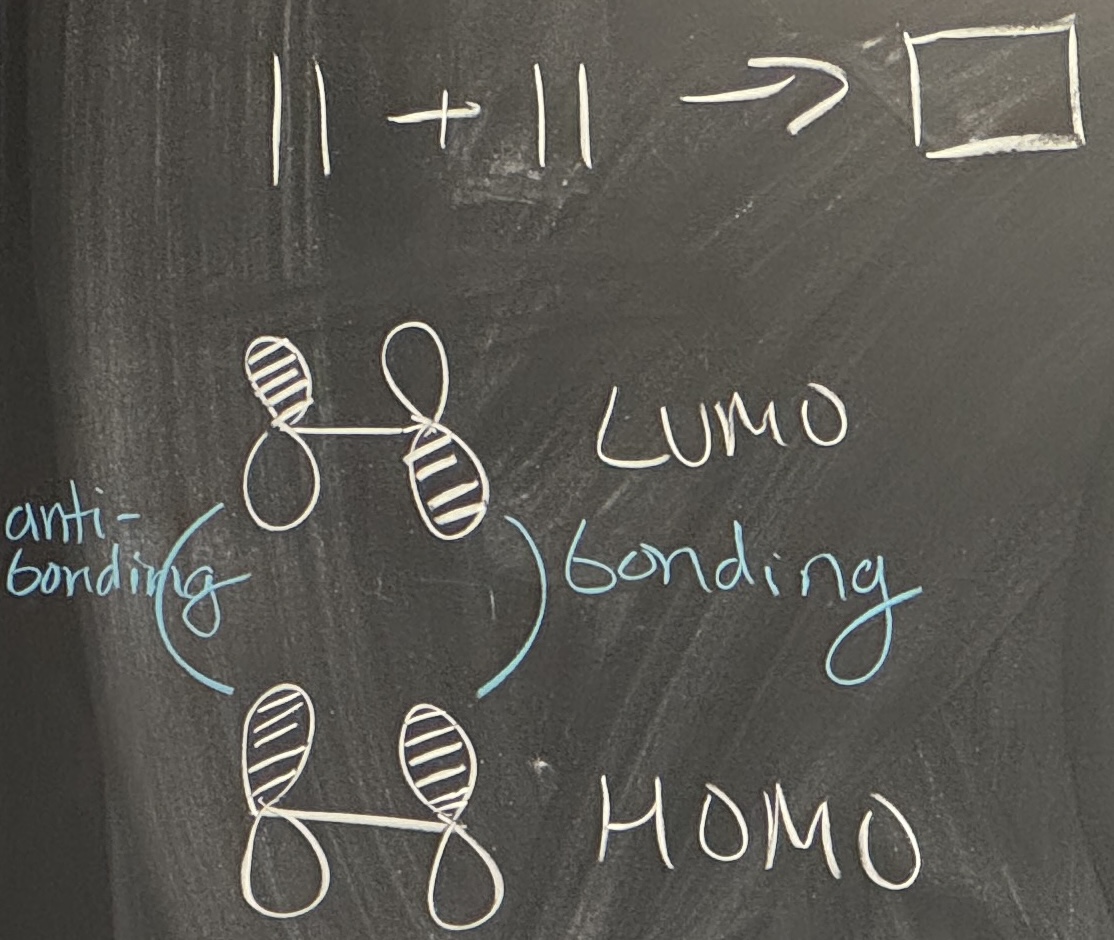 || + || → □
LUMO
anti-
bonding
bonding
HOMO